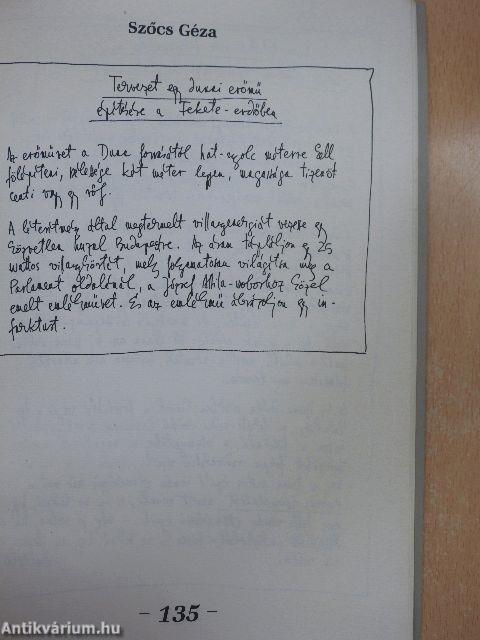 Szőcs Géza
Tervezet egy dunai erőmű
építésére a Fekete-erdőben
Az erőművet a Duna forrásától hat-nyolc méterre kell
fölépíteni, szélessége két méter legyen, magassága tizenöt
centi vagy egy röf.
A létesítmény által megtermelt villanyenergiát vezesse egy
közvetlen kábel Budapestre. Az áram tápláljon egy 25
wattos villanykörtét, mely folyamatosan világítsa meg a
Parlament oldalánál, a József Attila-szoborhoz közel
emelt emlékművet. És az emlékmű ábrázoljon egy in-
farktust.
- 135 -
Antikvárium.hu